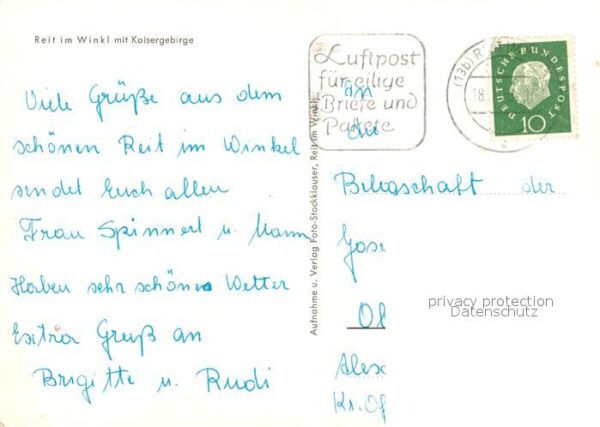 Reit im Winkl mit Kaisergebirge
Viele Grüße aus dem
schönen Reit im Winkel
sendet Euch allen
Frau Spinnert u. Mann
Haben sehr schönes Wetter
Extra Gruß an
Brigitte u. Rudi
Aufnahme u. Verlag Foto-Stocklauser, Reit im Winkl
Luftpost
für eilige
Briefe und
Pakete
(13b) REIT
18.
DEUTSCHE BUNDESPOST
10
An
die
Belegschaft der
Gose
Ol
Alex
Kr. Of
privacy protection
Datenschutz